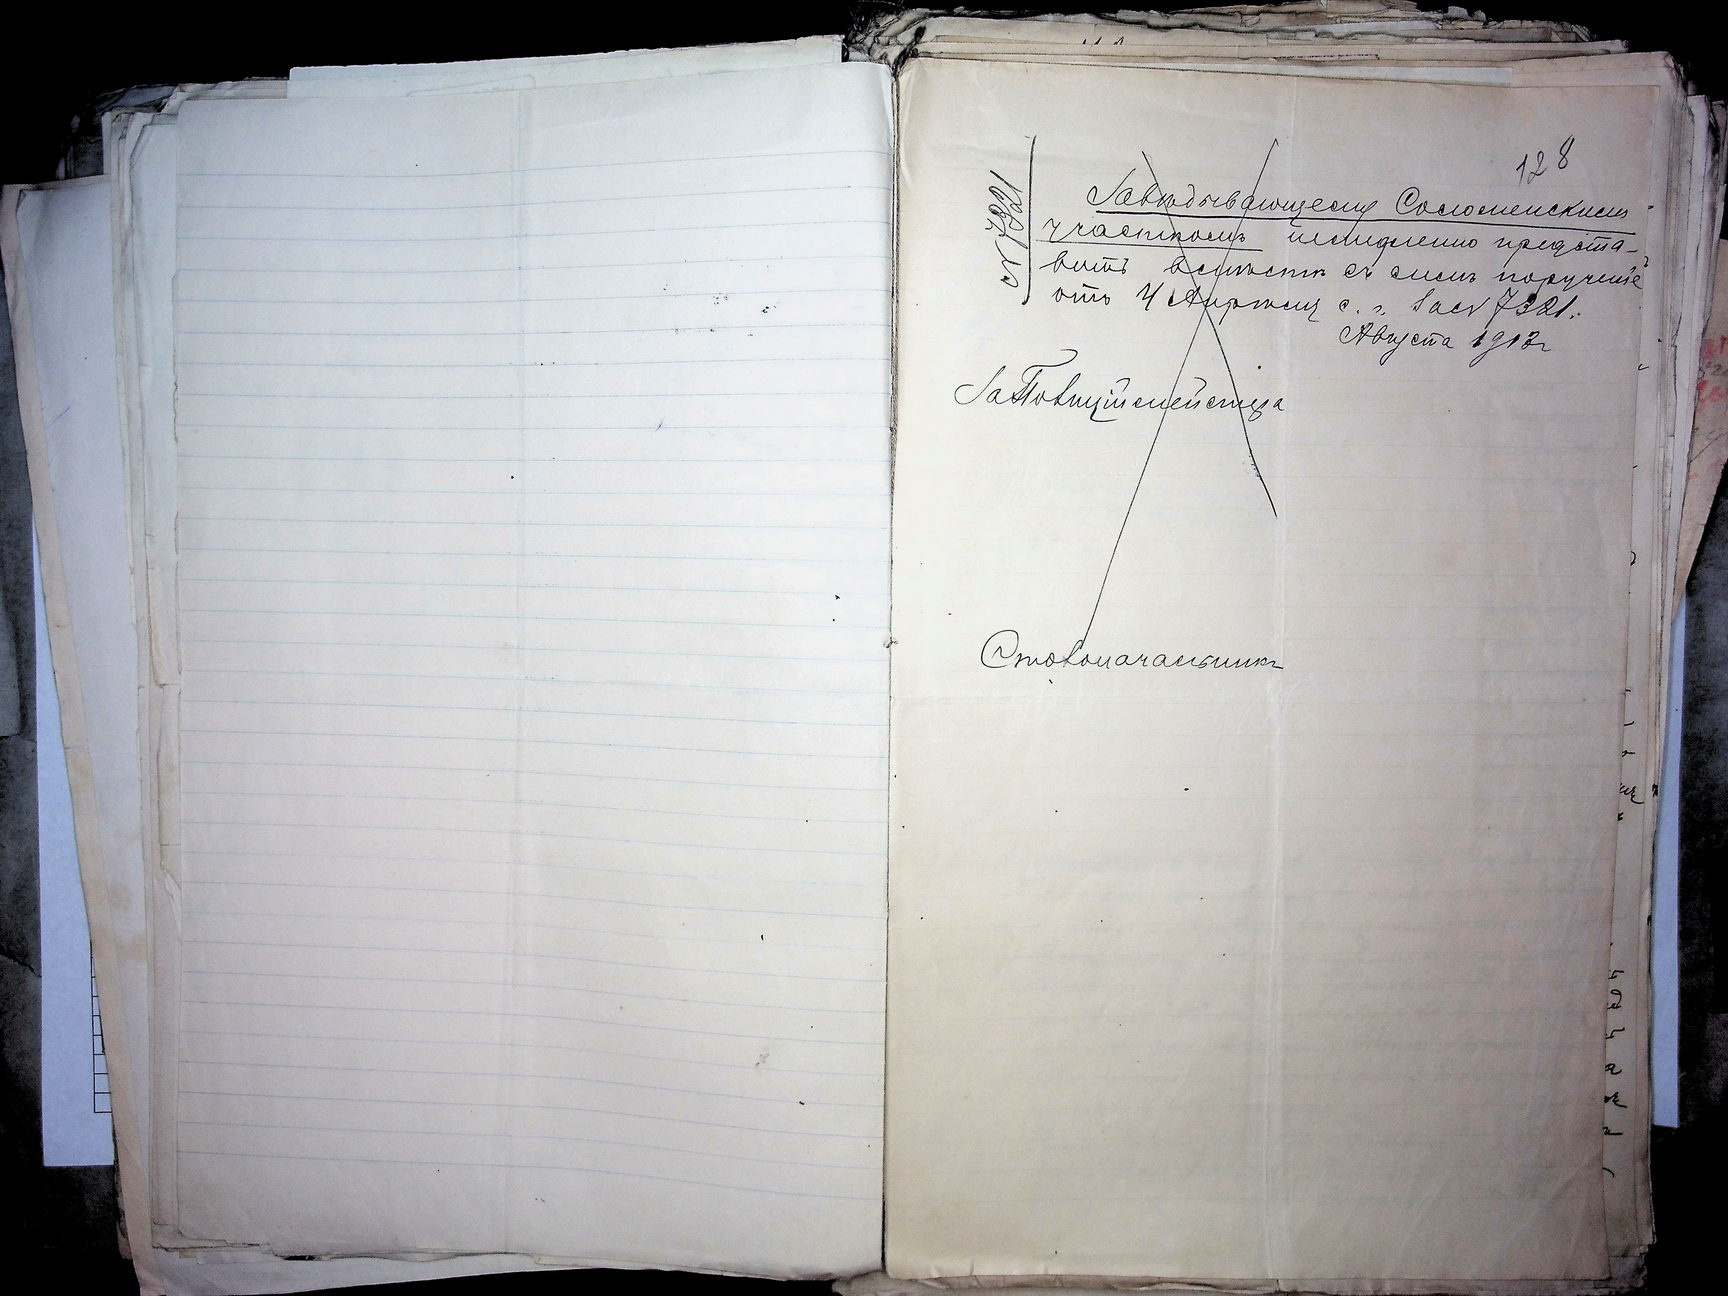 128
№ 7321
Завѣдывающему Соломенскимъ
участкомъ немедленно предста-
вить вмѣстѣ съ симъ порученіе
отъ 4 Апрѣля с. г. за № 7321.
Августа 1912 г
За Полиціймейстера
Столоначальникъ